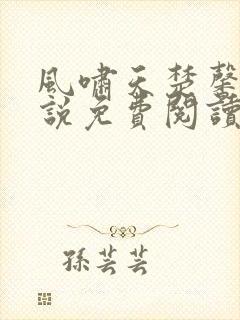 風嘯天楚馨
說免費閱讀
孫芸芸